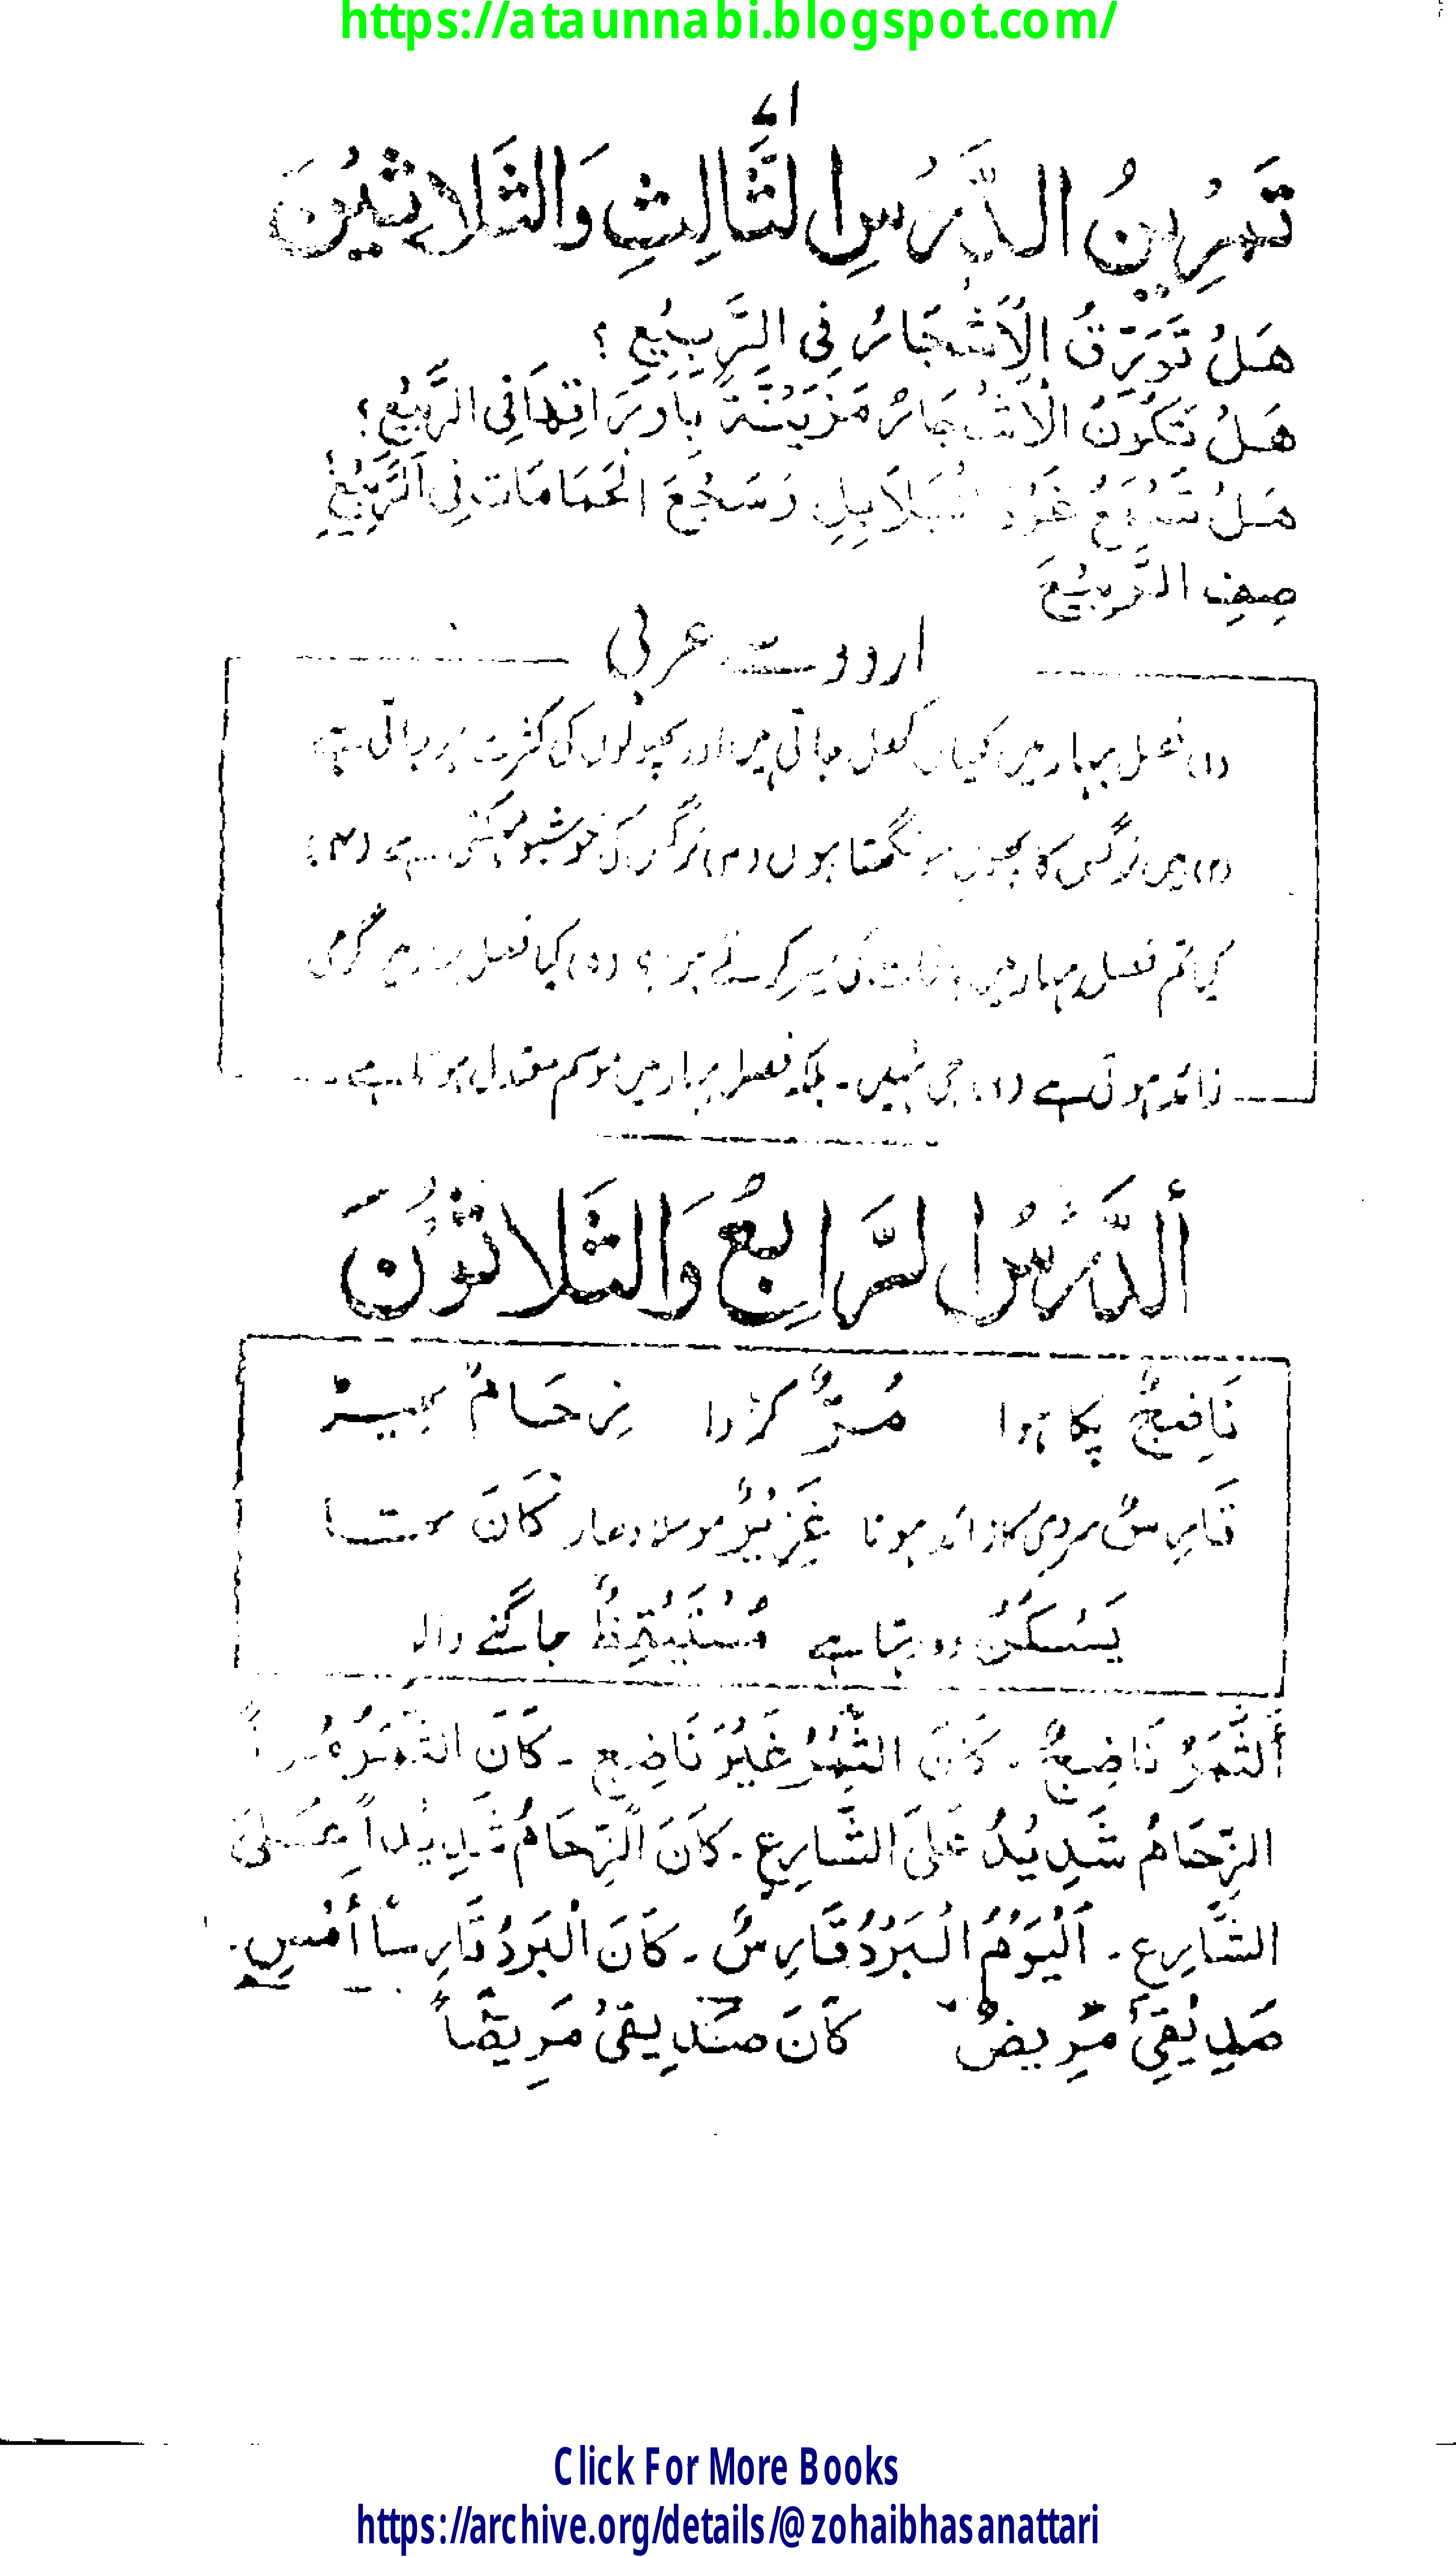 https://ataunnabi.blogspot.com/
تَمْرِيْنُ الدَّرْسِ الثَّالِثِ وَالثَّلَاثِيْنَ
هَلْ تَوَرَّقُ الْأَشْجَارُ فِى الرَّبِيْعِ ؟
هَلْ تَكُوْنُ الْأَشْجَارُ مُزَيَّنَةً بِأَوْرَاقِهَا فِى الرَّبِيْعِ ؟
هَلْ تَسْمَعُ الْبَلَابِلِ وَسَجْعَ الْحَمَامَاتِ فِى الرَّبِيْعِ
صِفِ الرَّبِيْعَ
اردو سے عربی
(۱) فصل بہار میں کلیاں کھل جاتی ہیں اور پھولوں کی کثرت ہو جاتی ہے
(۲) میں نرگس کا پھول سونگھتا ہوں (۳) نرگس کی خوشبو مہکتی ہے (۴)
کیا تم فصل بہار میں باغات کی سیر کرتے ہو ؟ (۵) کیا فصل بہار میں گرمی
زائد ہوتی ہے (۶) جی نہیں ۔ بلکہ فصل بہار میں موسم معتدل ہوتا ہے
أَلدَّرْسُ الرَّابِعُ وَالثَّلَاثُوْنَ
نَاضِجٌ پکا ہوا مُرٌّ کڑوا زِحَامٌ بھیڑ
قَارِسٌ سردی کا زائد ہونا غَزِيْرٌ موسلا دھار كَانَ تھا
يَسْكُنُ وہ رہتا ہے مُسْتَيْقِظٌ جاگنے والا
أَلثَّمَرُ نَاضِجٌ ۔ كَانَ الثَّمَرُ غَيْرَ نَاضِجٍ ۔ كَانَ الثَّمَرُ مُرًّا
الزِّحَامُ شَدِيْدٌ عَلَى الشَّارِعِ ۔ كَانَ الزِّحَامُ شَدِيْداً عَلَى
الشَّارِعِ ۔ اَلْيَوْمُ الْبَرْدُ قَارِسٌ ۔ كَانَ الْبَرْدُ قَارِساً أَمْسِ ۔
صَدِيْقِىْ مَرِيضٌ كَانَ صَدِيقِىْ مَرِيضاً
Click For More Books
https://archive.org/details/@zohaibhasanattari